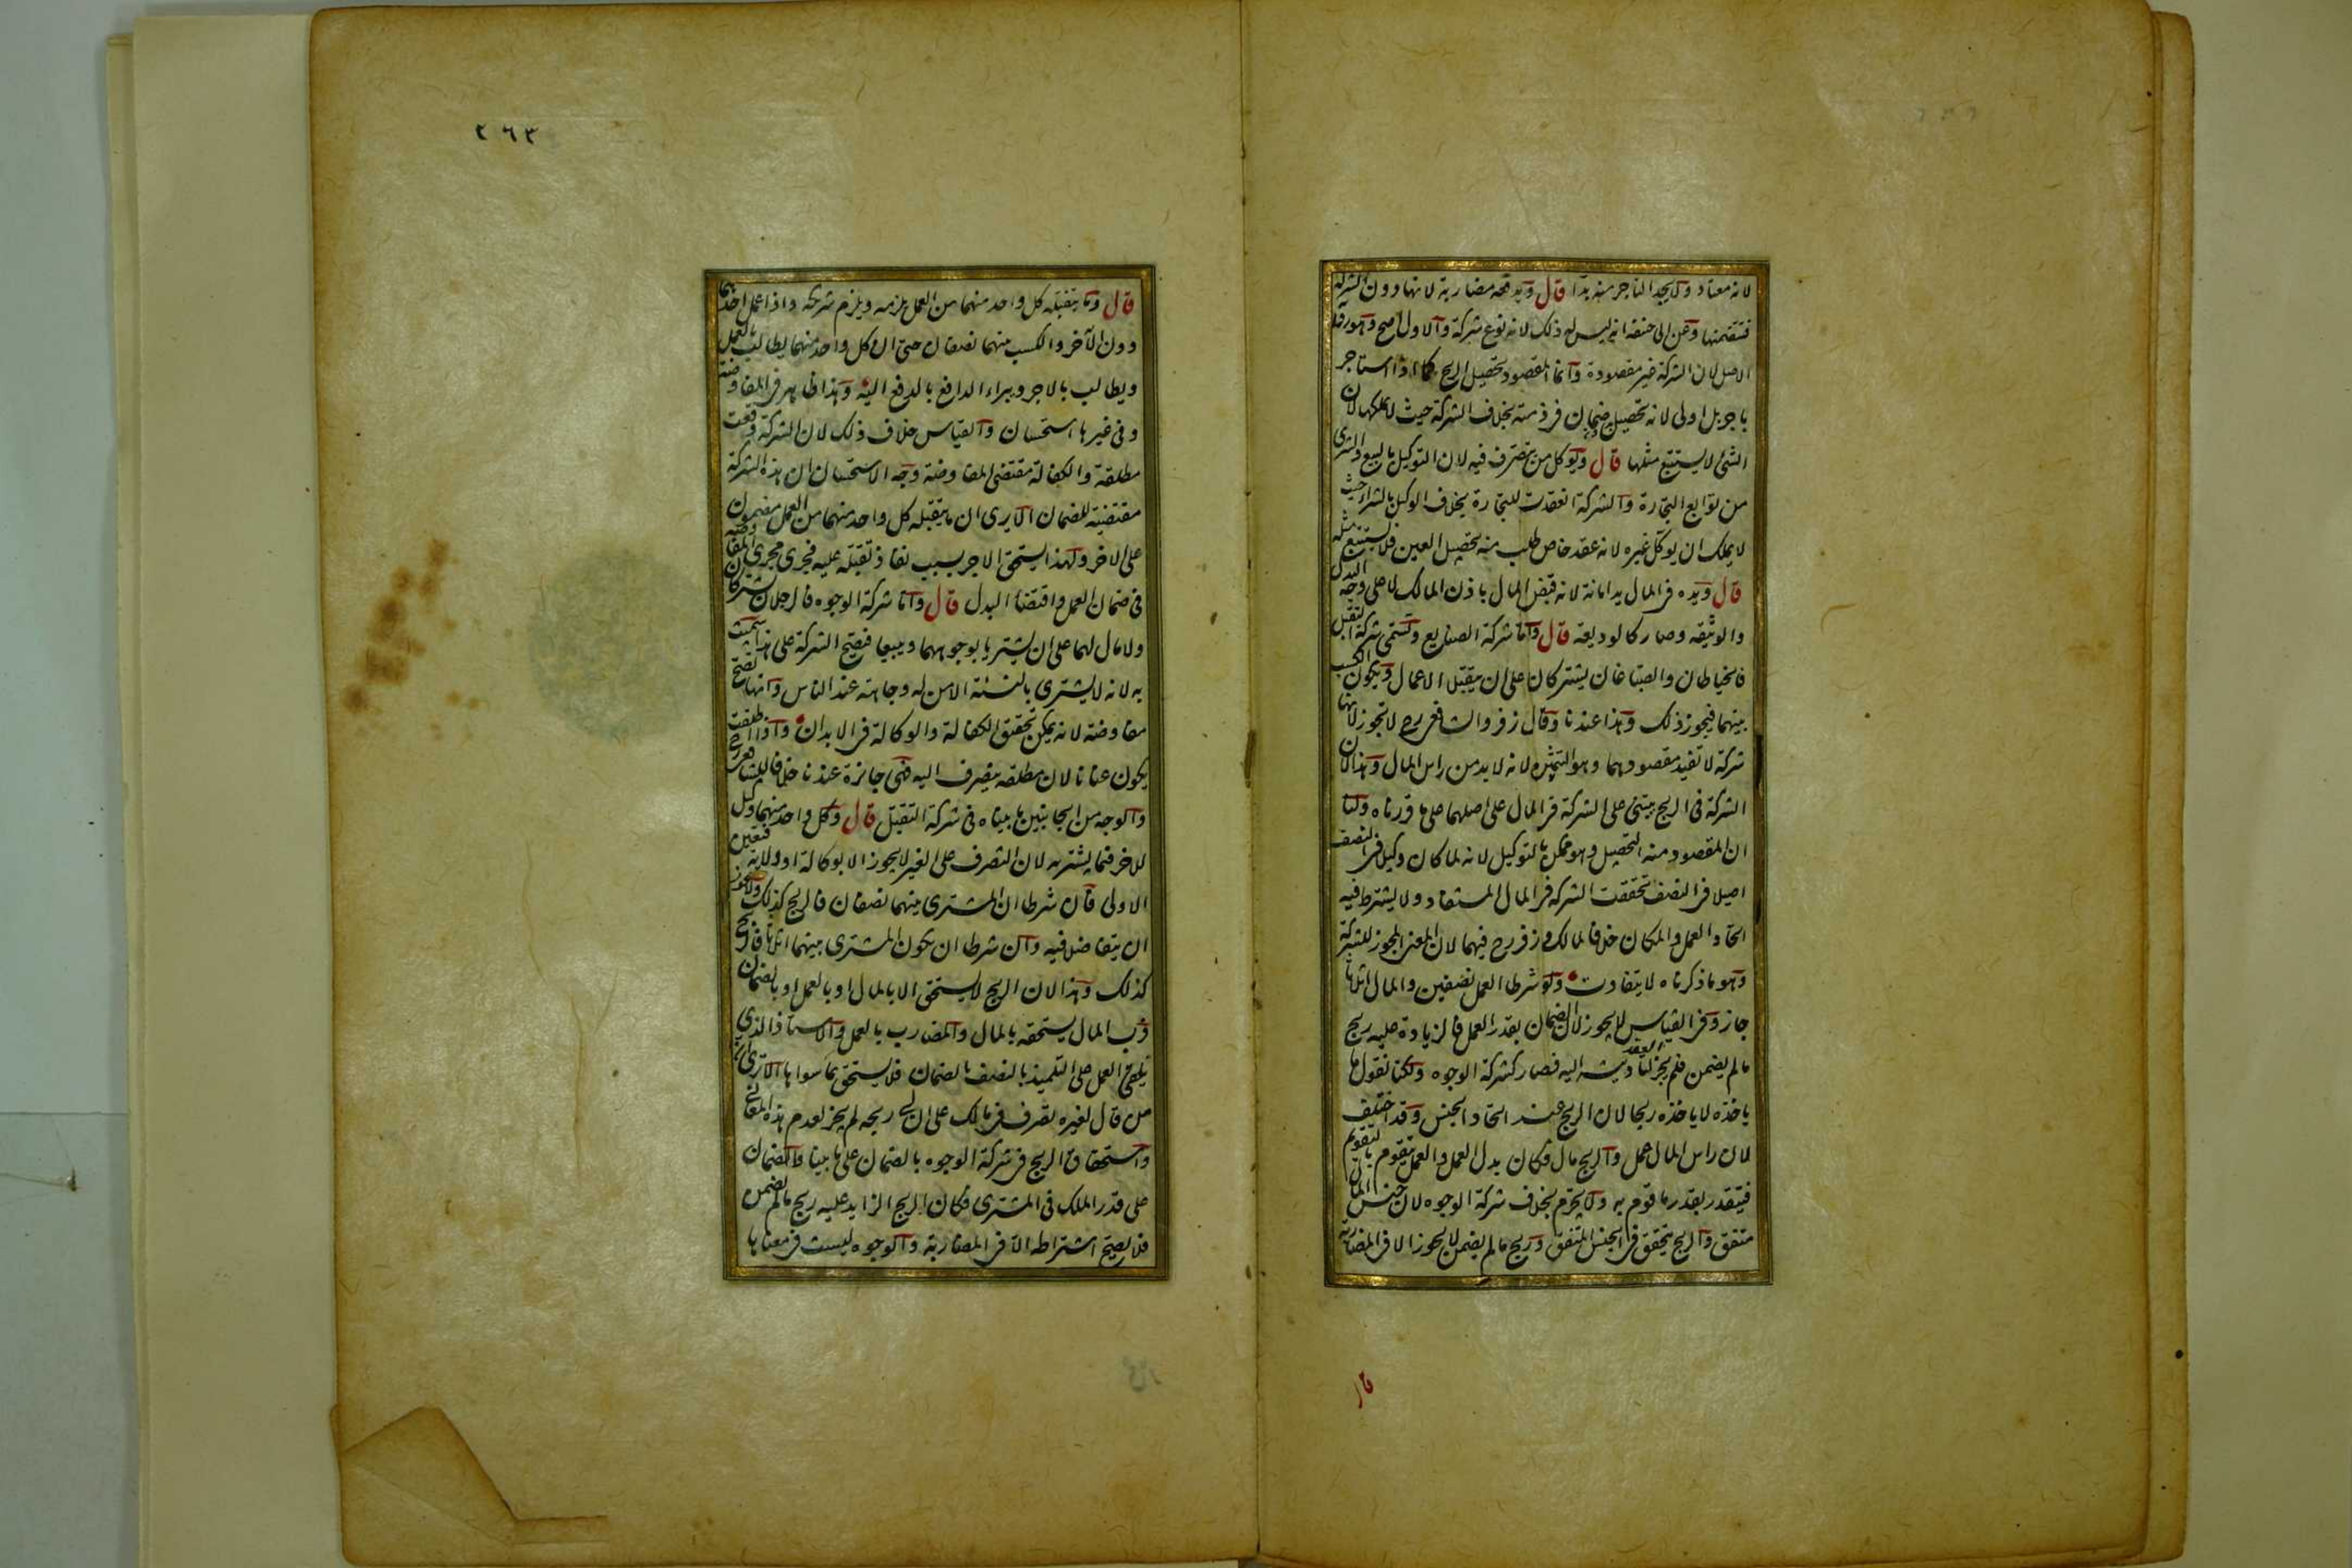 لانه معتاد ولا يجد التاجر منه بدا قال ويدفعه مضاربة لانها دون الشركة
فتتضمنها وعن ابى حنيفة انه ليس له ذلك لانه نوع شركة والاول اصح وهو رواية
الاصل لان الشركة غير مقصودة وانما المقصود تحصيل الربح كما اذا استاجر
باجر بل اولى لانه تحصيل بدون ضمان فى ذمته بخلاف الشركة حيث لا يملكها لان
الشئ لا يستتبع مثلها قال ويوكل من يتصرف فيه لان التوكيل بالبيع والشرى
من توابع التجارة والشركة انعقدت للتجارة بخلاف الوكيل بالشراء حيث
لا يملك ان يوكل غيره لانه عقد خاص طلب منه تحصيل العين فلا يستتبع مثله
قال ويده فى المال يد امانة لانه قبض المال باذن المالك لا على وجه البدل
والوثيقه وصار كالوديعة قال واما شركة الصنايع وتسمى شركة التقبل
فالخياطان والصباغان يشتركان على ان يتقبلا الاعمال ويكون الكسب
بينهما فيجوز ذلك وهذا عندنا وقال زفر والشافعى رح لا تجوز لانها
شركة لا تفيد مقصودهما وهو التثمير لانه لا بد من راس المال وهذا لان
الشركة فى الربح يبتنى على الشركة فى المال على اصلهما على ما قررناه ولنا
ان المقصود منه التحصيل وهو ممكن بالتوكيل لانه لما كان وكيلا فى النصف
اصيلا فى النصف تحققت الشركة فى المال المستفاد ولا يشترط فيه
اتحاد العمل والمكان خلافا لمالك وزفر رح فيهما لان المعنى المجوز للشركة
وهو ما ذكرناه لا يتفاوت ولو شرطا العمل نصفين والمال اثلاثا
جاز وفى القياس لا يجوز لان الضمان بقدر العمل فالزيادة عليه ربح
ما لم يضمن فلم يجز العقد لتاديته اليه فصار كشركة الوجوه ولكنا نقول ما
ياخذه لا ياخذه ربحا لان الربح عند اتحاد الجنس وقد اختلف
لان راس المال عمل والربح مال فكان بدل العمل والعمل يتقوم بالتقويم
فيتقدر بقدر ما قوم به ولا يحرم بخلاف شركة الوجوه لان جنس المال
متفق والربح يتحقق فى الجنس المتفق وربح ما لم يضمن لا يجوز الا فى المضاربة
قال
٢٦٣
قال وما يتقبله كل واحد منهما من العمل يلزمه ويلزم شريكه واذا عمل احدهما
دون الآخر والكسب منهما نصفان حتى ان كل واحد منهما يطالب بالعمل
ويطالب بالاجر ويبراء الدافع بالدفع اليه وهذا ظاهر فى المفاوضة
وفى غيرها استحسان والقياس خلاف ذلك لان الشركة وقعت
مطلقة والكفالة مقتضى المفاوضة وجه الاستحسان ان هذه الشركة
مقتضية للضمان الا يرى ان ما يتقبله كل واحد منهما من العمل مضمون
على الاخر ولهذا يستحق الاجر بسبب نفاذ تقبله عليه فجرى مجرى المفاوضة
فى ضمان العمل واقتضاء البدل قال واما شركة الوجوه فالرجلان يشتركان
ولا مال لهما على ان يشتريا بوجوههما ويبيعا فتصح الشركة على هذا سميت
به لانه لا يشترى بالنسئة الا من له وجاهة عند الناس وانما تصح
مفاوضة لانه يمكن تحقيق الكفالة والوكالة فى الابدان واذا اطلقت
يكون عنانا لان مطلقه ينصرف اليه فهى جائزة عندنا خلافا للشافعى رح
والوجه من الجانبين ما بيناه فى شركة التقبل قال وكل واحد منهما وكيل
للاخر فيما يشتريه لان التصرف على الغير لا يجوز الا بوكالة او ولاية فتعين
الاولى فان شرطا ان المشترى بينهما نصفان فالربح كذلك ولا يجوز
ان يتفاضلا فيه وان شرطا ان يكون المشترى بينهما اثلاثا فالربح
كذلك وهذا لان الربح لا يستحق الا بالمال او بالعمل او بالضمان
فرب المال يستحقه بالمال والمضارب بالعمل والاستاذ الذى
يلقى العمل على التلميذ بالنصف بالضمان فلا يستحق بما سواها الا ترى ان
من قال لغيره تصرف فى مالك على ان لى ربحه لم يجز لعدم هذه المعانى
واستحقاق الربح فى شركة الوجوه بالضمان على ما بينا والضمان
على قدر الملك فى المشترى فكان الربح الزايد عليه ربح ما لم يضمن
فلا يصح اشتراطه الا فى المضاربة والوجوه ليست فى معناها